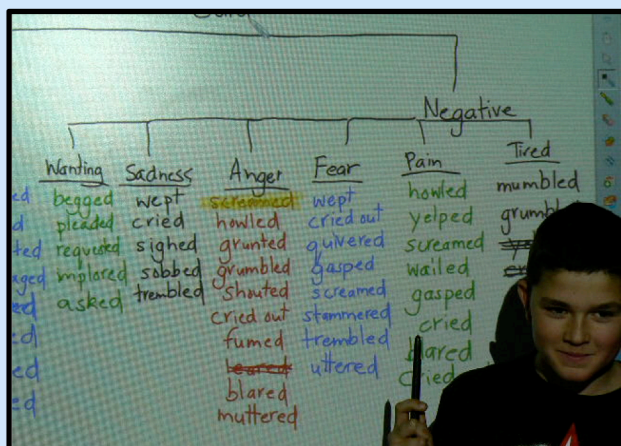 Negative
Wanting
begged
pleaded
requested
implored
asked
Sadness
wept
cried
sighed
sobbed
trembled
Anger
screamed
howled
grunted
grumbled
shouted
cried out
fumed
blared
muttered
Fear
wept
cried out
quivered
gasped
screamed
stammered
trembled
uttered
Pain
howled
yelped
screamed
wailed
gasped
cried
blared
cried
Tired
mumbled